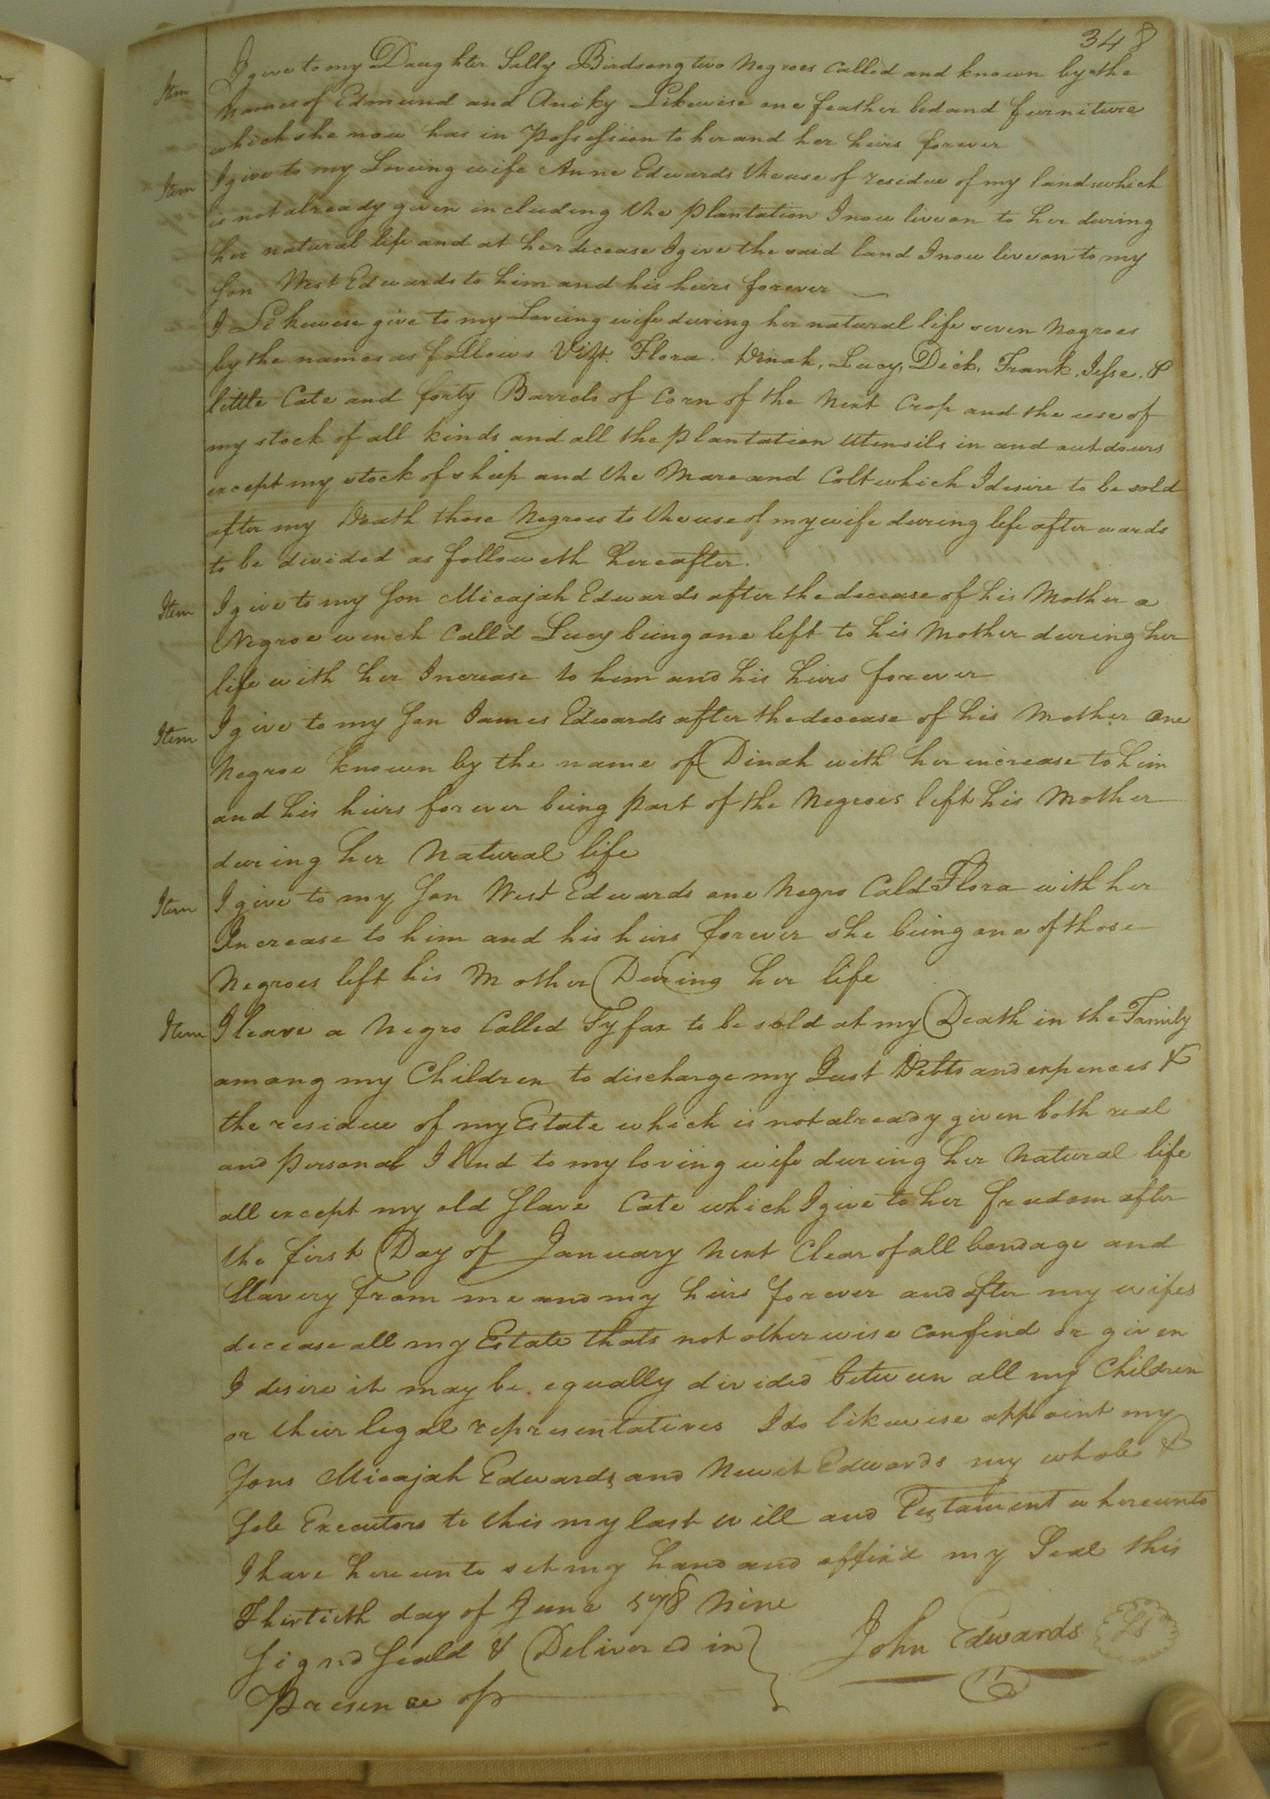 348
Item I give to my Daughter Sally Birdsong two Negroes Called and known by the
Names of Edmund and Aniky Likewise one feather bed and furniture
which she now has in Possession to her and her heirs forever
Item I give to my Loving wife Anne Edwards the use of residue of my lands which
is not already given including the plantation I now live on to her during
her natural life and at her decease I give the said land I now live on to my
Son West Edwards to him and his heirs forever
I Likewise give to my Loveing wife during her natural life seven Negroes
by the names as follows Vizt. Flora. Dinah, Lucy, Dick, Frank, Jesse, &
little Cate and forty Barrels of Corn of the Next Crop and the use of
my stock of all kinds and all the plantation utensils in and out doors
except my stock of sheep and the Mare and Colt which I desire to be sold
after my Death those Negroes to the use of my wife during life after wards
to be divided as followeth hereafter.
Item I give to my Son Micajah Edwards after the decease of his Mother a
Negroe wench Call'd Lucy being one left to his Mother during her
life with her Increase to him and his heirs forever
Item I give to my Son James Edwards after the decease of his Mother one
Negroe known by the name of Dinah with her increase to him
and his heirs forever being part of the Negroes left his Mother
during her Natural life
Item I give to my Son West Edwards one Negro Cald Flora with her
Increase to him and his heirs forever she being one of those
Negroes left his Mother During her life
Item I leave a Negro Called Fyfax to be sold at my Death in the Family
among my Children to discharge my Just Debts and expences &
the residue of my Estate which is not already given both real
and personal I lend to my loving wife during her Natural life
all except my old Slave Cate which I give to her freedom after
the first Day of January Next Clear of all bondage and
Slavery from me and my heirs forever and after my wifes
decease all my Estate thats not otherwise confind or given
I desire it may be equally divided between all my Children
or their legal representatives I do likewise appoint my
Sons Micajah Edwards and Newit Edwards my whole &
Sole Executors to this my last will and Testament whereunto
I have hereunto set my hand and affix'd my Seal this
Thirtieth day of June 578 Nine
Signd Seald & Delivered in
Presence of
John Edwards LS